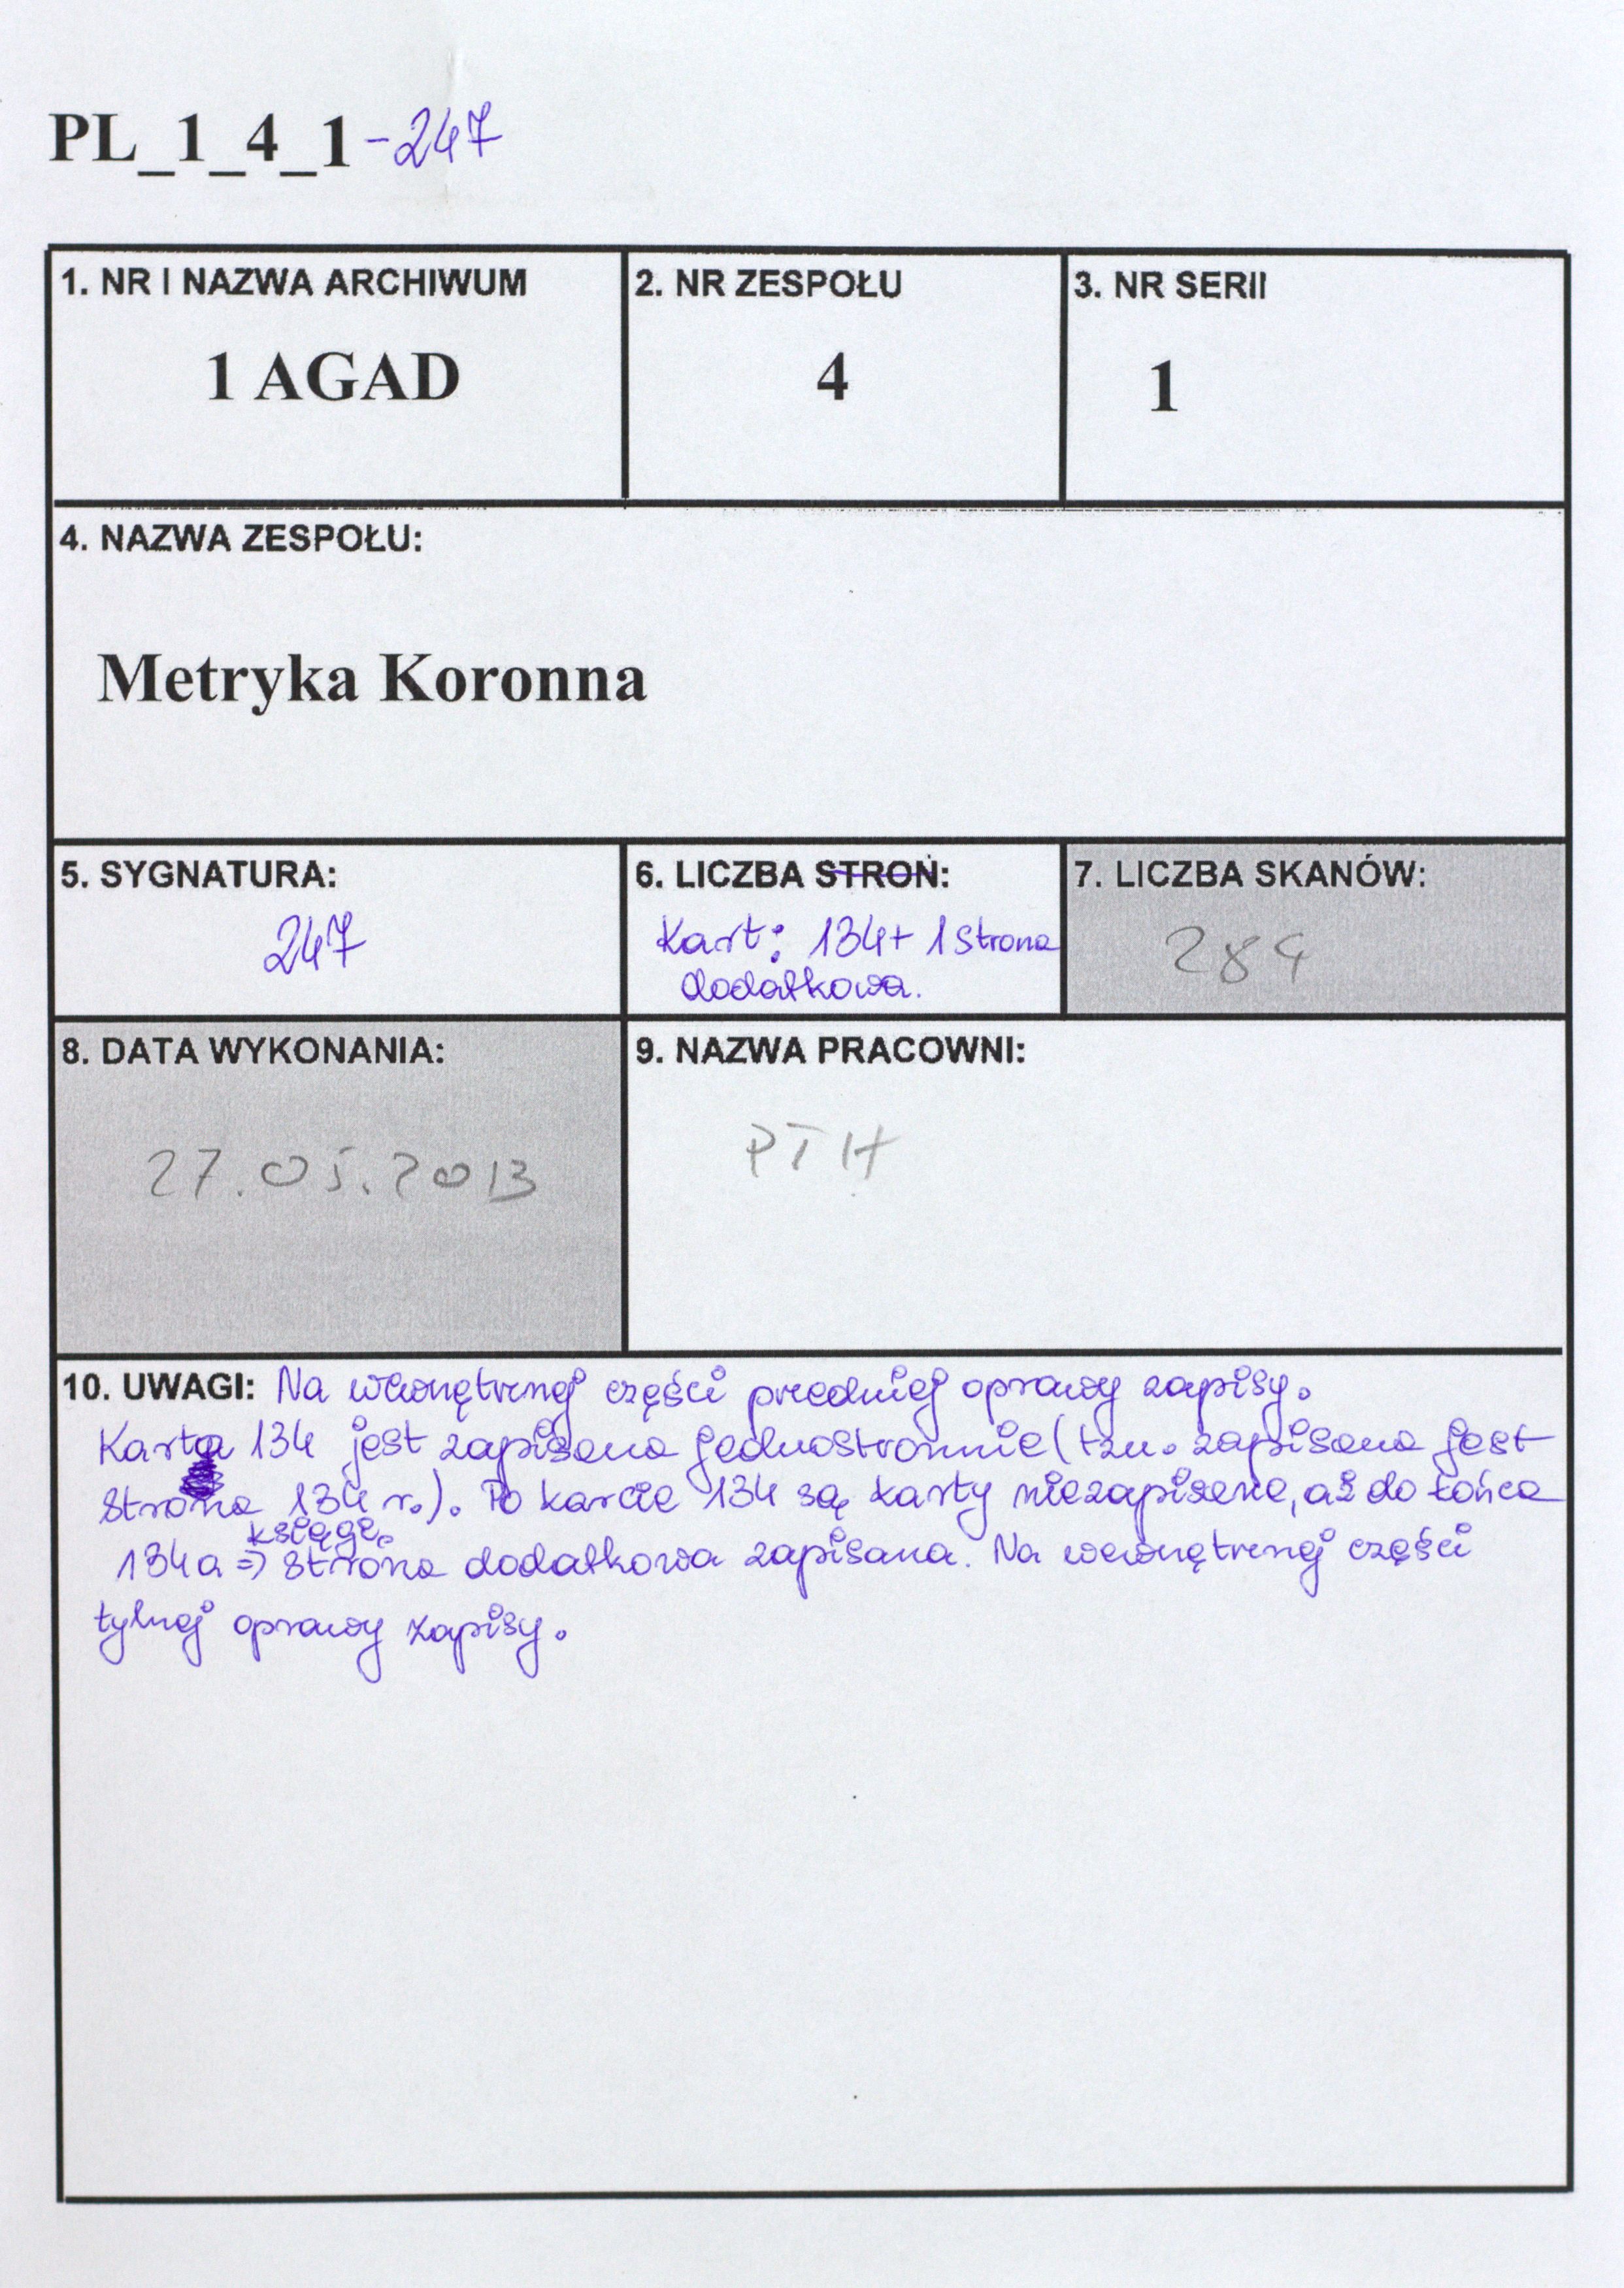 PL_1_4_1-247
1. NR I NAZWA ARCHIWUM
1 AGAD
2. NR ZESPOŁU
4
3. NR SERII
1
4. NAZWA ZESPOŁU:
Metryka Koronna
5. SYGNATURA:
247
6. LICZBA STRON:
Kart: 134+ 1 strona
dodatkowa.
7. LICZBA SKANÓW:
284
8. DATA WYKONANIA:
27.05.2013
9. NAZWA PRACOWNI:
PTH
10. UWAGI: Na wewnętrznej części przedniej oprawy zapisy.
Karta 134 jest zapisana jednostronnie (tzn. zapisana jest
strona 134 r.). Po karcie 134 są karty niezapisane, aż do końca
księgi.
134a => strona dodatkowa zapisana. Na wewnętrznej części
tylnej oprawy zapisy.